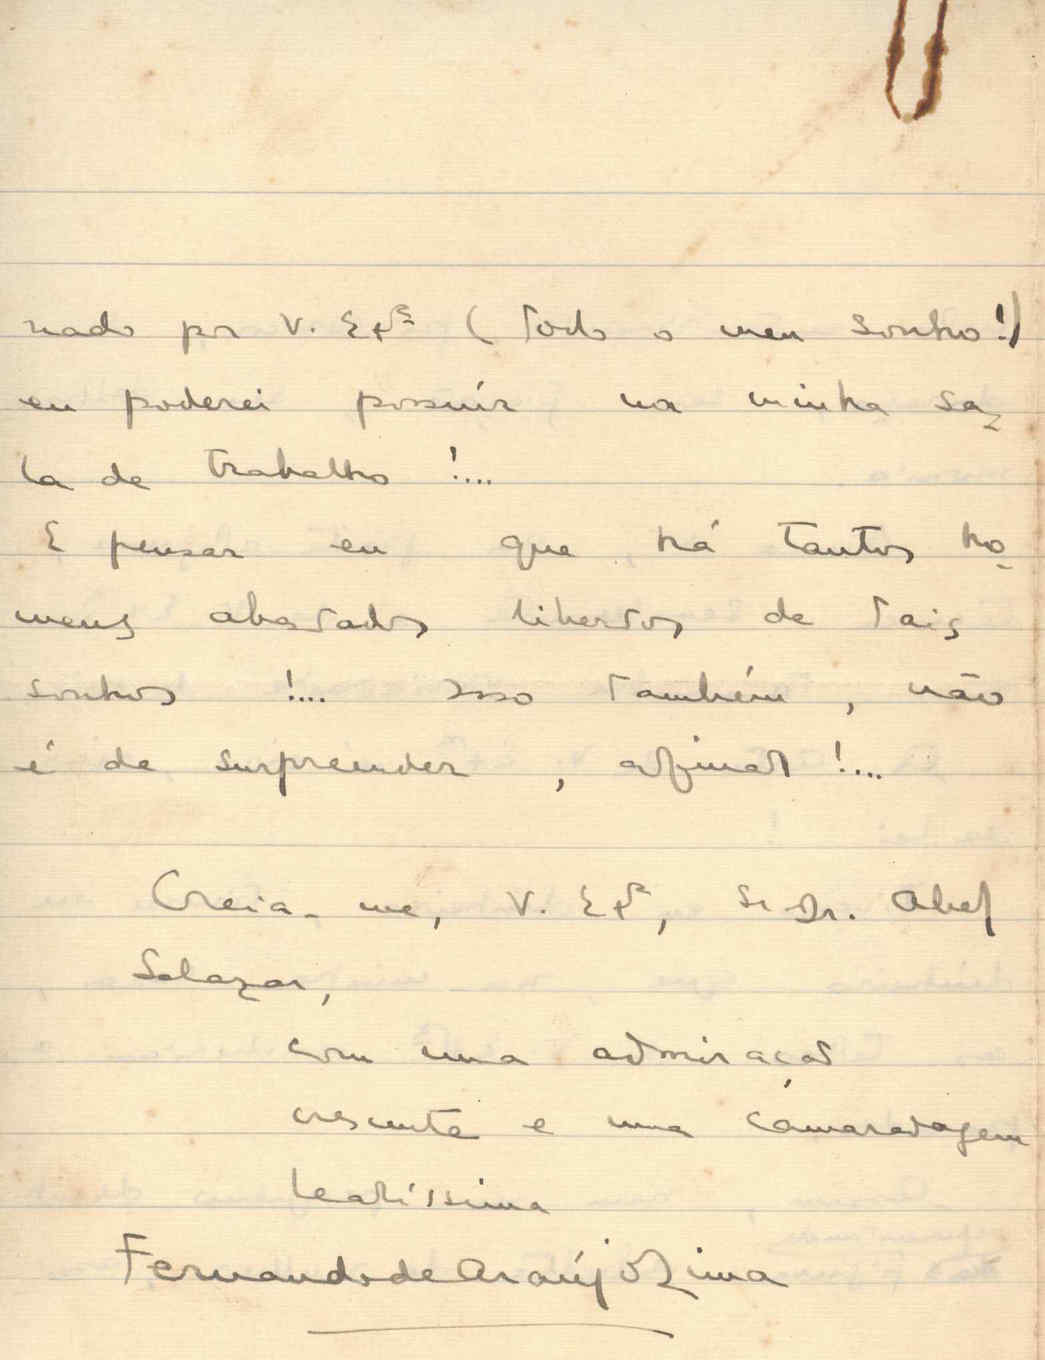 nado por V. Exª (todo o meu sonho!)
eu poderei possuír na minha sa-
la de trabalho !...
E pensar eu que há tantos ho-
mens abastados libertos de tais
sonhos !... Isso também, não
é de surpreender, afinal !...
Creia-me, V. Exª, Sr Dr. Abel
Salazar,
com uma admiração
crescente e uma camaradagem
lealíssima
Fernando de Araújo Lima